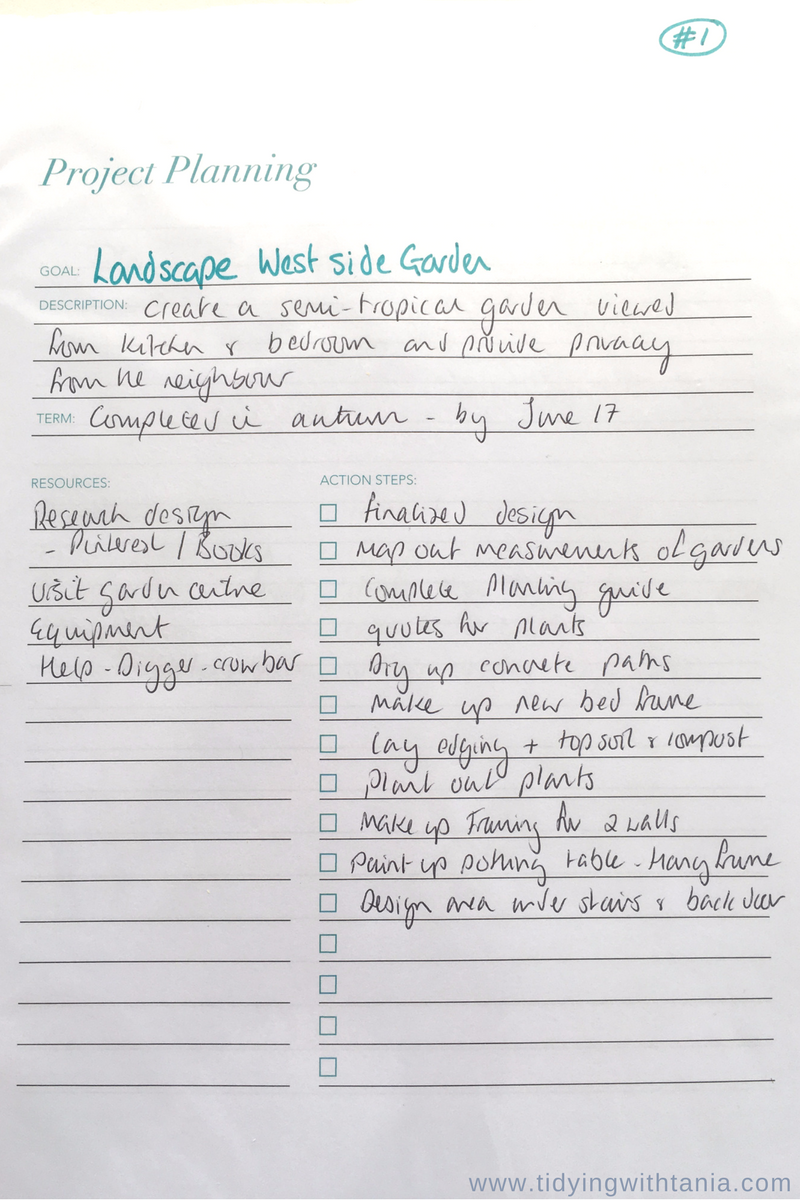 #1
Project Planning
GOAL: Landscape West side Garden
DESCRIPTION: create a semi-tropical garden viewed
from kitchen & bedroom and provide privacy
from the neighbour
TERM: Completed in autumn - by June 17
RESOURCES:
Research design
- Pinterest / Books
visit garden centre
Equipment
Help - Digger - crowbar
ACTION STEPS:
finalized design
Map out measurements of gardens
Complete planting guide
quotes for plants
Dig up concrete paths
Make up new bed frame
Lay edging + top soil & compost
Plant out plants
Make up Framing for 2 walls
Paint up potting table - Hang frame
Design area under stairs & back door
www.tidyingwithtania.com